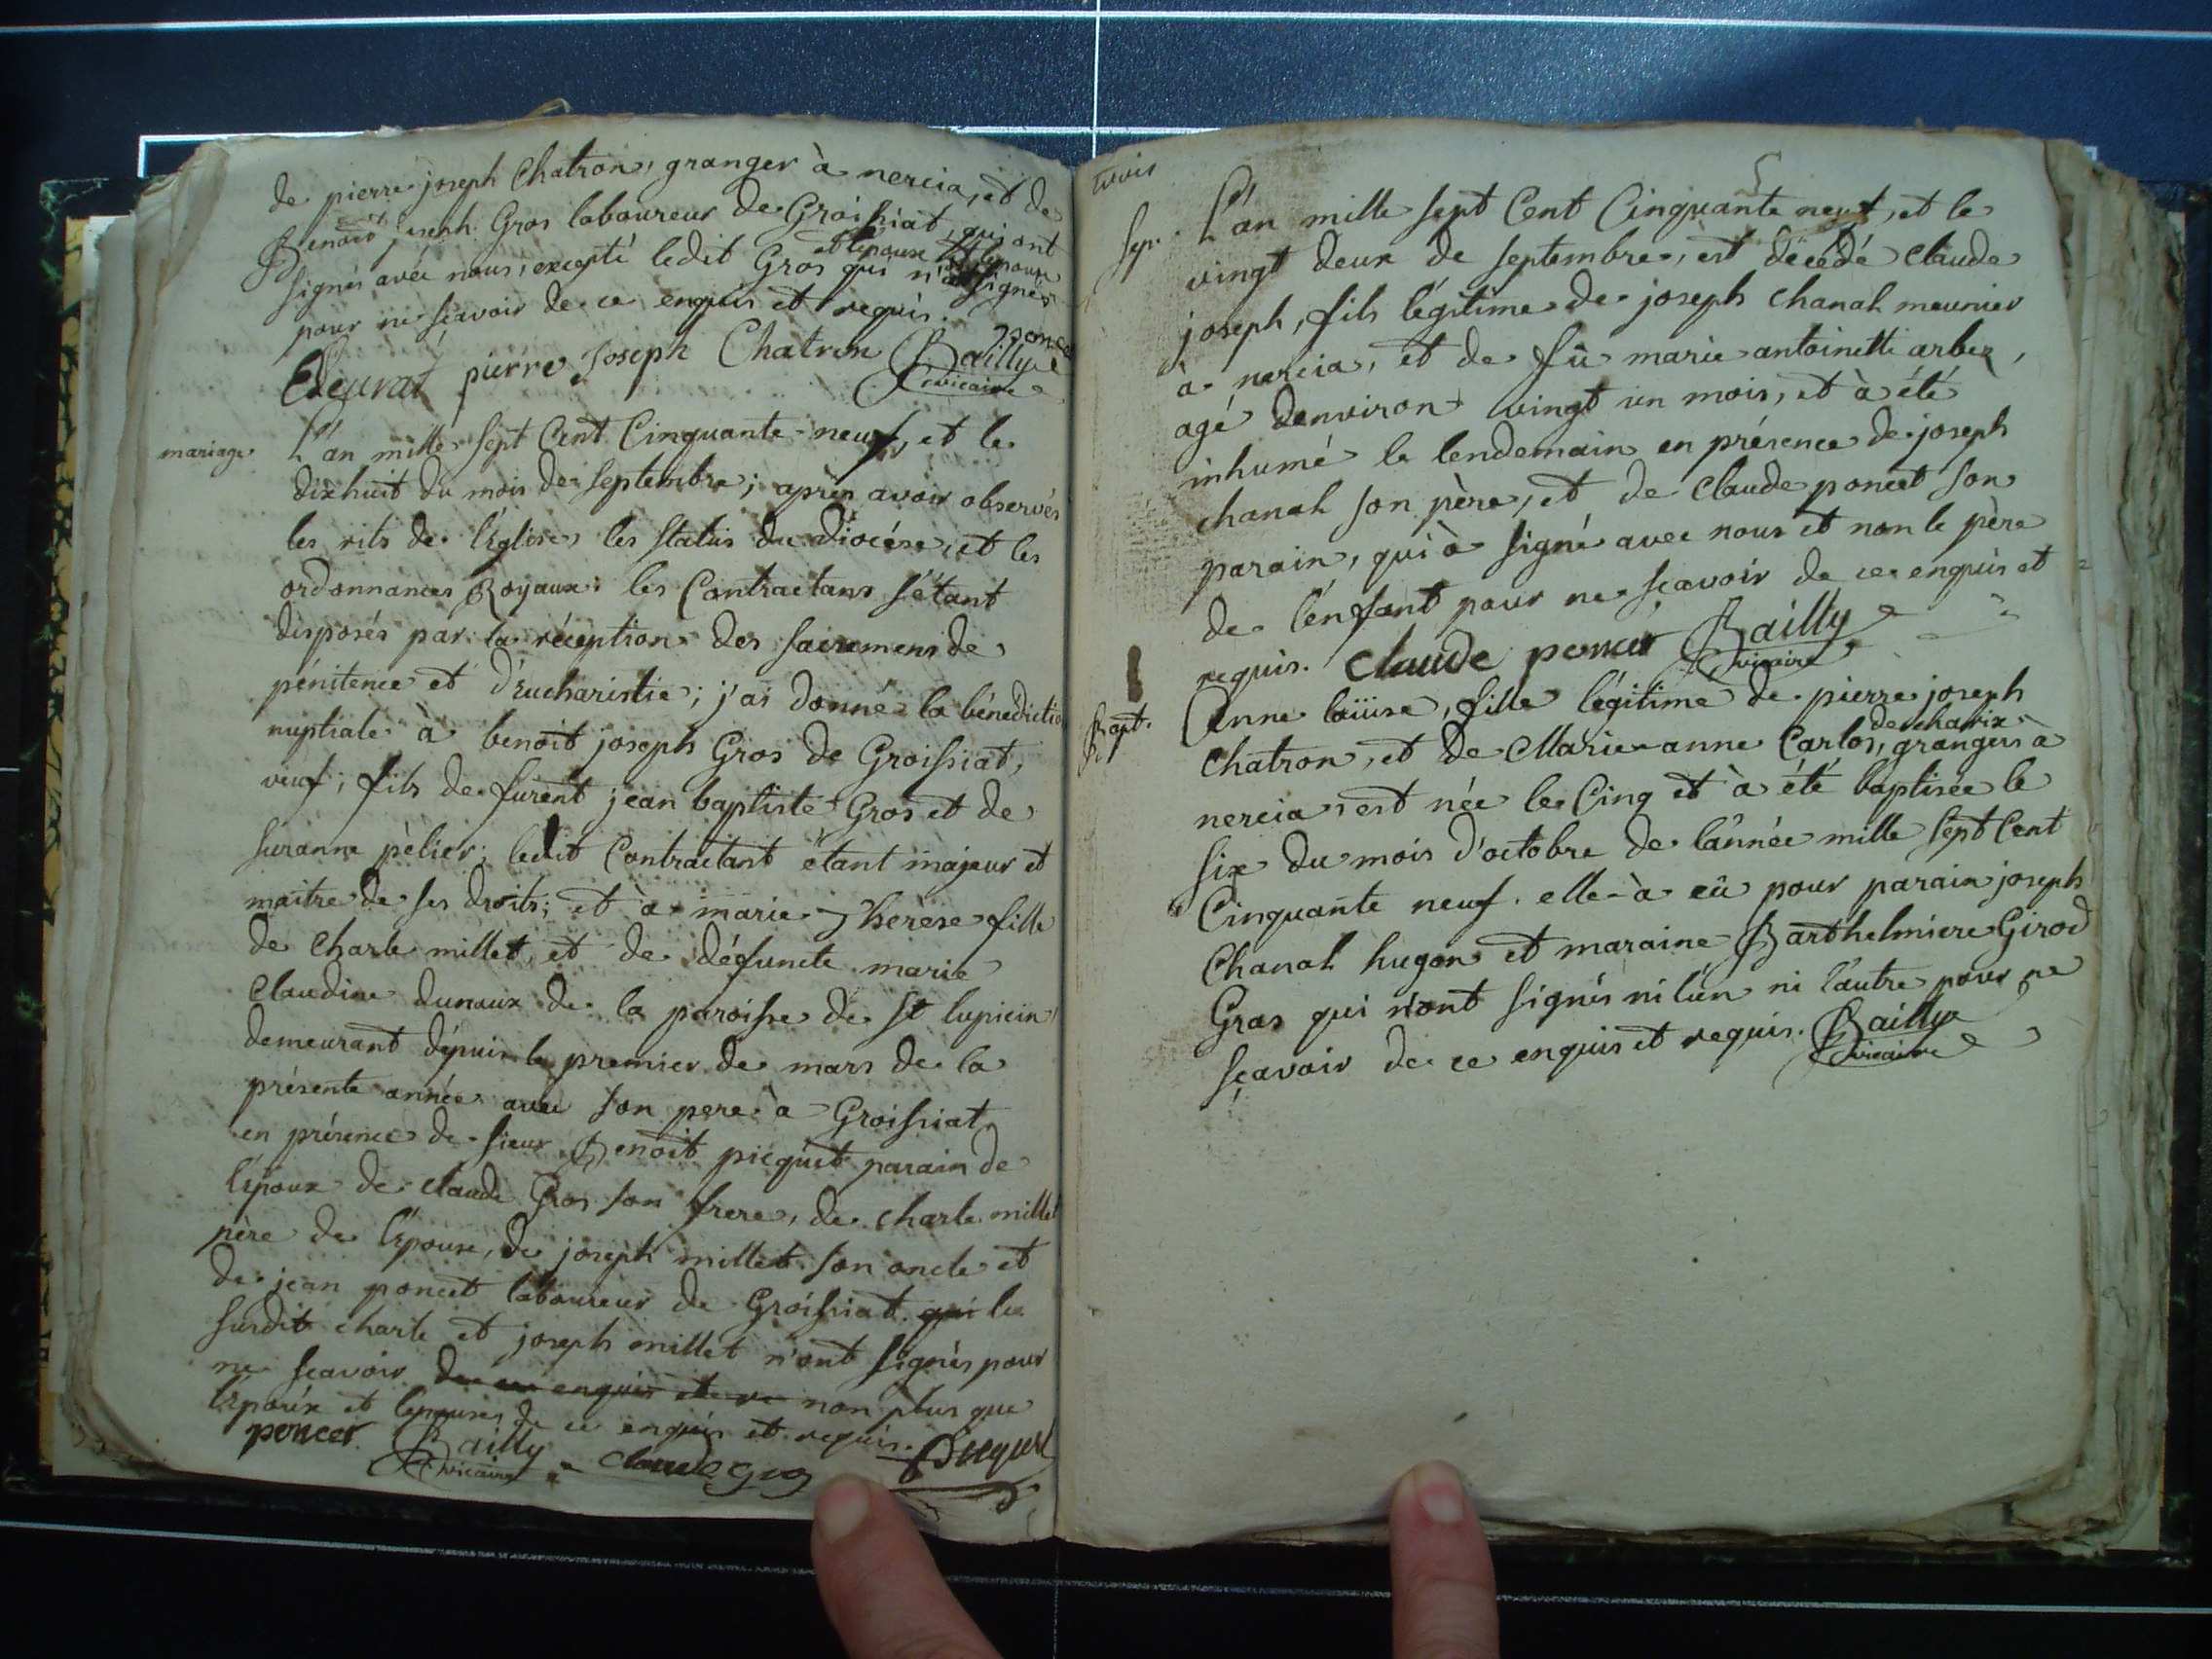 de pierre joseph Chatron, granger à nercia, et de
Benoit joseph Gros laboureur de Groissiat, qui ont
signés avéc nous, excepté ledit Gros et l'epouse qui n'ont signés
pour ne sçavoir de ce enquis et requis.
poncet
pierre Joseph Chatron Bailly
vicaire
mariage
L'an mille sept Cent Cinquante-neuf, et le
dixhuit du mois de septembre; après avoir observés
les rits de l'Eglise, les statuts du diocése, et les
ordonnances Royaux; les Contractans s'étant
disposés par la réception des sacremens de
pénitence et d'Eucharistie; j'ai donné la bénédictio
nuptiale à benoit joseph Gros de Groissiat,
veuf; fils de furent jean baptiste Gros et de
suzanne pèlier; ledit Contractant étant majeur et
maitre de ses droits; et à marie Therèse fille
de Charle millet, et de défuncte marie
Claudine dunaux de la paroisse de St lupicin
demeurant dépuis le premier de mars de la
présente année avec son pere à Groissiat
en présence de sieur Benoit picquet parain de
l'époux de claude Gros son frere, de charle millet
père de l'épouse, de joseph millet son oncle et
de jean poncet laboureur de Groissiat qui les
susdit charle et joseph millet n'ont signés pour
ne sçavoir de ce enquis et re non plus que
l'époux et l'epouse, de ce enquis et requis.
poncet Bailly vicaire claude Gros Picquet
5
sep. L'an mille sept Cent Cinquante neuf, et le
vingt deux de septembre, est décédé claude
joseph, fils légitime de joseph chanal meunier
à nercia, et de fû marie antoinette arbez,
agé denviron vingt un mois, et à été
inhumé le lendemain en présence de joseph
chanal son père, et de Claude poncet son
parain, qui à signé avec nous et non le père
de l'enfant pour ne sçavoir de ce enquis et
requis. Claude poncet Bailly
vicaire
Bapt. Anne loüise, fille légitime de pierre joseph
chatron, et de Marie-anne Carlos, de charix, grangers à
nercia, est née le Cinq et à été baptisée le
six du mois d'octobre de l'année mille sept Cent
Cinquante neuf. elle à eû pour parain joseph
Chanal hugon et maraine Barthelmiere Girod
Gras qui n'ont signés ni l'un ni l'autre pour ne
sçavoir de ce enquis et requis. Bailly
vicaire